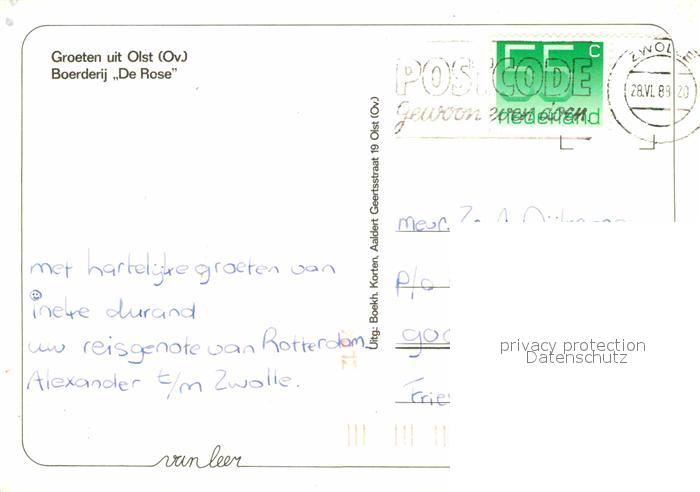 Groeten uit Olst (Ov.)
Boerderij „De Rose”
met hartelijke groeten van
ineke durand
uw reisgenote van Rotterdam
Alexander t/m Zwolle.
van leer
Uitg.: Boekh. Korten, Aaldert Geertsstraat 19 Olst (Ov.)
POSTCODE
Gewoon even doen.
55 c
nederland
28.VI.89 20
mevr.
p/o
privacy protection
Datenschutz